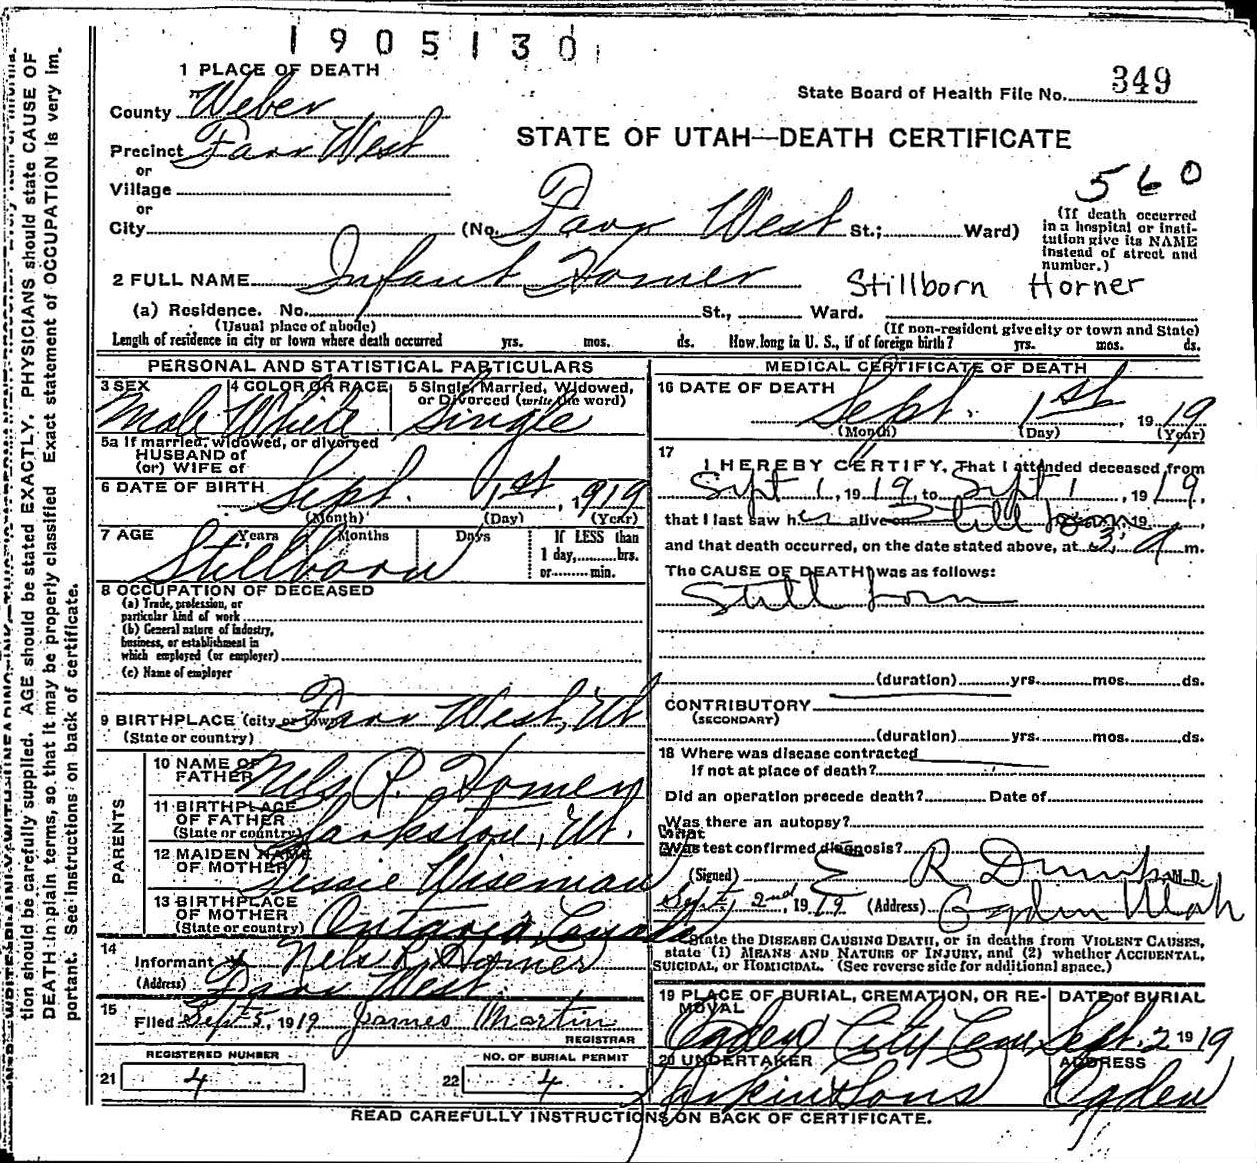 1905130
1 PLACE OF DEATH
State Board of Health File No. 349
County Weber
STATE OF UTAH—DEATH CERTIFICATE
Precinct Farr West
or
Village
or
City (No. Farr West St.; Ward)
560
(If death occurred
in a hospital or insti-
tution give its NAME
instead of street and
number.)
2 FULL NAME Infant Horner
Stillborn Horner
(a) Residence. No. St., Ward.
(Usual place of abode) (If non-resident give city or town and State)
Length of residence in city or town where death occurred yrs. mos. ds. How long in U. S., if of foreign birth? yrs. mos. ds.
PERSONAL AND STATISTICAL PARTICULARS
3 SEX 4 COLOR OR RACE 5 Single, Married, Widowed,
or Divorced (write the word)
Male White Single
5a If married, widowed, or divorced
HUSBAND of
(or) WIFE of
6 DATE OF BIRTH Sept. 1st, 1919
(Month) (Day) (Year)
7 AGE Years Months Days If LESS than
1 day, hrs.
or min.
Stillborn
8 OCCUPATION OF DECEASED
(a) Trade, profession, or
particular kind of work
(b) General nature of industry,
business, or establishment in
which employed (or employer)
(c) Name of employer
9 BIRTHPLACE (city or town) Farr West, Ut
(State or country)
PARENTS
10 NAME OF
FATHER Nels P. Horner
11 BIRTHPLACE
OF FATHER
(State or country) Ut.
12 MAIDEN NAME
OF MOTHER Jessie Wiseman
13 BIRTHPLACE
OF MOTHER
(State or country) Ontario, Canada
14
Informant Nels Horner
(Address) Farr West.
15
Filed Sept 5, 1919 James Martin
REGISTRAR
REGISTERED NUMBER NO. OF BURIAL PERMIT
21 4 22 4
MEDICAL CERTIFICATE OF DEATH
16 DATE OF DEATH
Sept. 1st 1919
(Month) (Day) (Year)
17
I HEREBY CERTIFY, That I attended deceased from
Sept 1, 1919, to Sept 1, 1919,
that I last saw her alive on Still born 19
and that death occurred, on the date stated above, at 3 A m.
The CAUSE OF DEATH was as follows:
Still born
(duration) yrs. mos. ds.
CONTRIBUTORY
(SECONDARY)
(duration) yrs. mos. ds.
18 Where was disease contracted
If not at place of death?
Did an operation precede death? Date of
Was there an autopsy?
What
test confirmed diagnosis?
(Signed) E R M. D.
Sept 2nd, 1919 (Address) Ogden Utah
State the DISEASE CAUSING DEATH, or in deaths from VIOLENT CAUSES,
state (1) MEANS AND NATURE OF INJURY, and (2) whether ACCIDENTAL,
SUICIDAL, or HOMICIDAL. (See reverse side for additional space.)
19 PLACE OF BURIAL, CREMATION, OR RE-
MOVAL
DATE of BURIAL
Ogden City Cem. Sept. 2 1919
20 UNDERTAKER ADDRESS
Sons Ogden
READ CAREFULLY INSTRUCTIONS ON BACK OF CERTIFICATE.
tion should be carefully supplied. AGE should be stated EXACTLY. PHYSICIANS should state CAUSE OF
DEATH in plain terms, so that it may be properly classified. Exact statement of OCCUPATION is very im-
portant. See instructions on back of certificate.